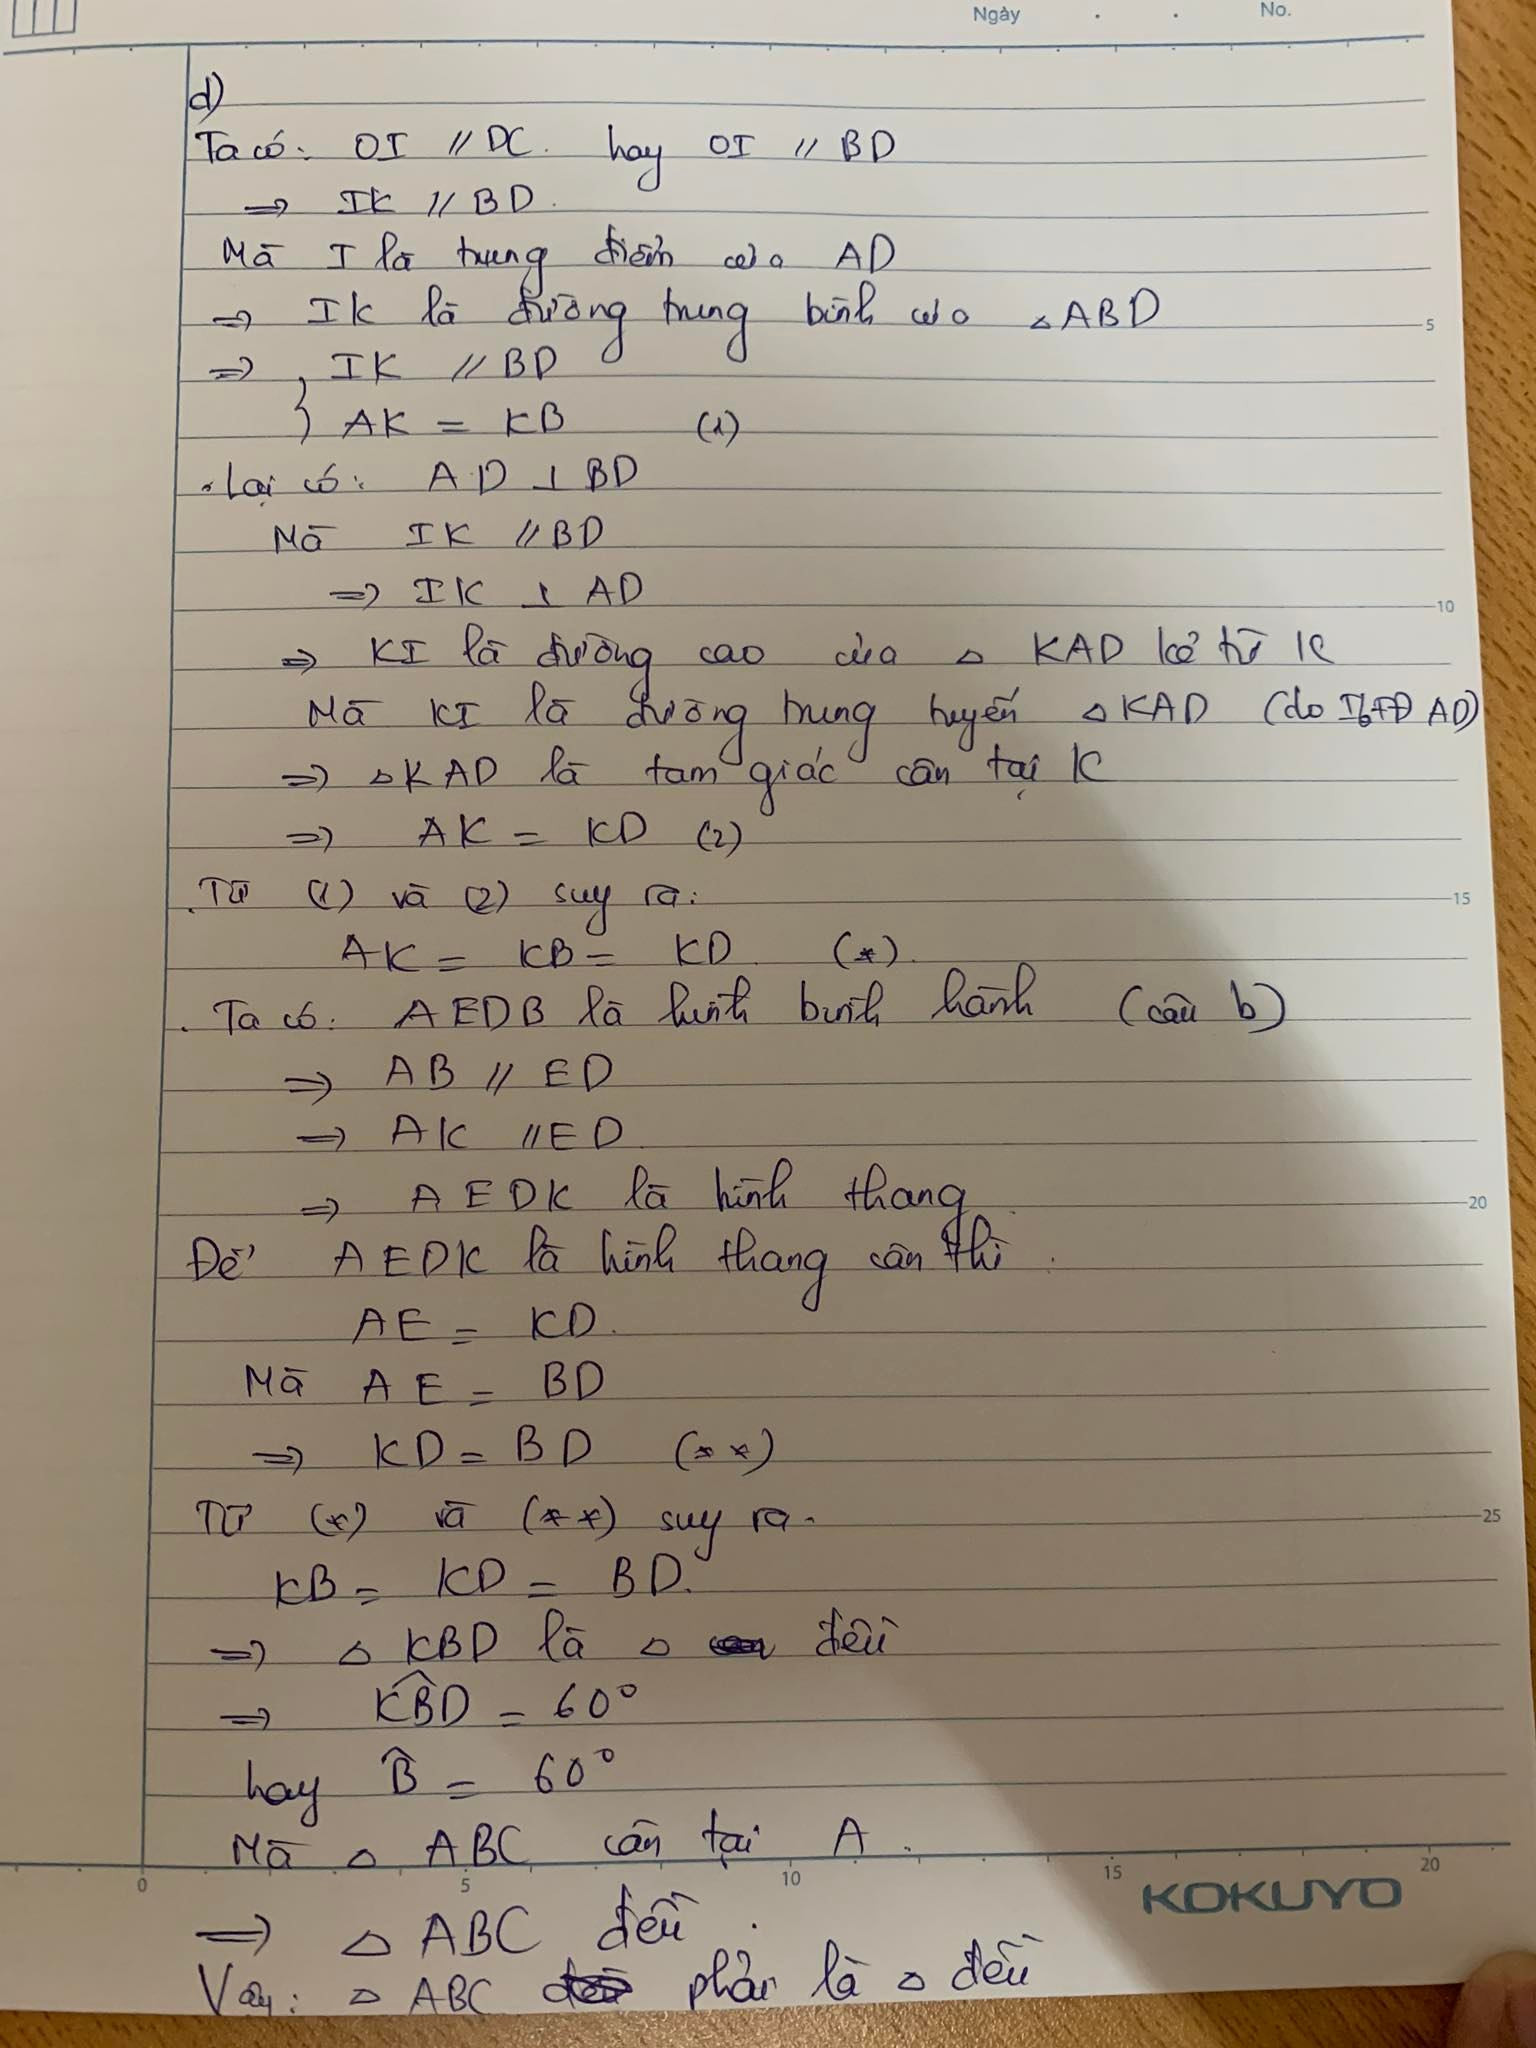 Ngày . . No.
d)
Ta có: OI // DC. hay OI // BD
=> IK // BD.
Mà I là trung điểm của AD
=> IK là đường trung bình của △ABD
5
=> IK // BD
AK = KB (1)
. Lại có: AD ⊥ BD
Mà IK // BD
=> IK ⊥ AD
10
=> KI là đường cao của △ KAD kẻ từ K
Mà KI là đường trung tuyến △KAD (do I TĐ AD)
=> △KAD là tam giác cân tại K
=> AK = KD (2)
. Từ (1) và (2) suy ra:
15
AK = KB = KD. (*).
. Ta có: AEDB là hình bình hành (câu b)
=> AB // ED
=> AK // ED.
=> AEDK là hình thang.
20
Để AEDK là hình thang cân thì.
AE = KD.
Mà AE = BD
=> KD = BD (**)
Từ (*) và (**) suy ra.
25
KB = KD = BD.
=> △ KBD là △ đều
=> KBD = 60°
hay B = 60°
Mà △ ABC cân tại A.
0 5 10 15 20
KOKUYO
=> △ ABC đều.
Vậy: △ ABC phải là △ đều